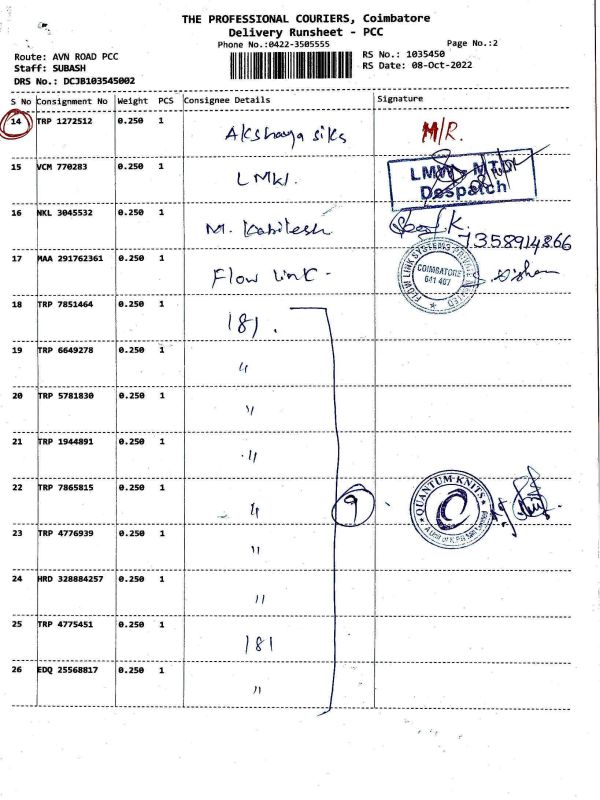 THE PROFESSIONAL COURIERS, Coimbatore
Delivery Runsheet - PCC
Phone No.:0422-3505555
Page No.:2
Route: AVN ROAD PCC
RS No.: 1035450
Staff: SUBASH
RS Date: 08-Oct-2022
DRS No.: DCJB103545002
S No Consignment No Weight PCS Consignee Details Signature
14 TRP 1272512 0.250 1 Akshaya siks M/R.
15 VCM 770283 0.250 1 LMW.
LMW - MTD
Despatch
16 NKL 3045532 0.250 1 M. Kabilesh
7358914866
17 MAA 291762361 0.250 1 Flow Link -
FLOW LINK SYSTEMS PRIVATE LIMITED
COIMBATORE
641 407
18 TRP 7851464 0.250 1 181.
19 TRP 6649278 0.250 1 "
20 TRP 5781830 0.250 1 "
21 TRP 1944891 0.250 1 "
22 TRP 7865815 0.250 1 " 9
QUANTUM KNITS
23 TRP 4776939 0.250 1 "
24 HRD 328884257 0.250 1 "
25 TRP 4775451 0.250 1 181
26 EDQ 25568817 0.250 1 "